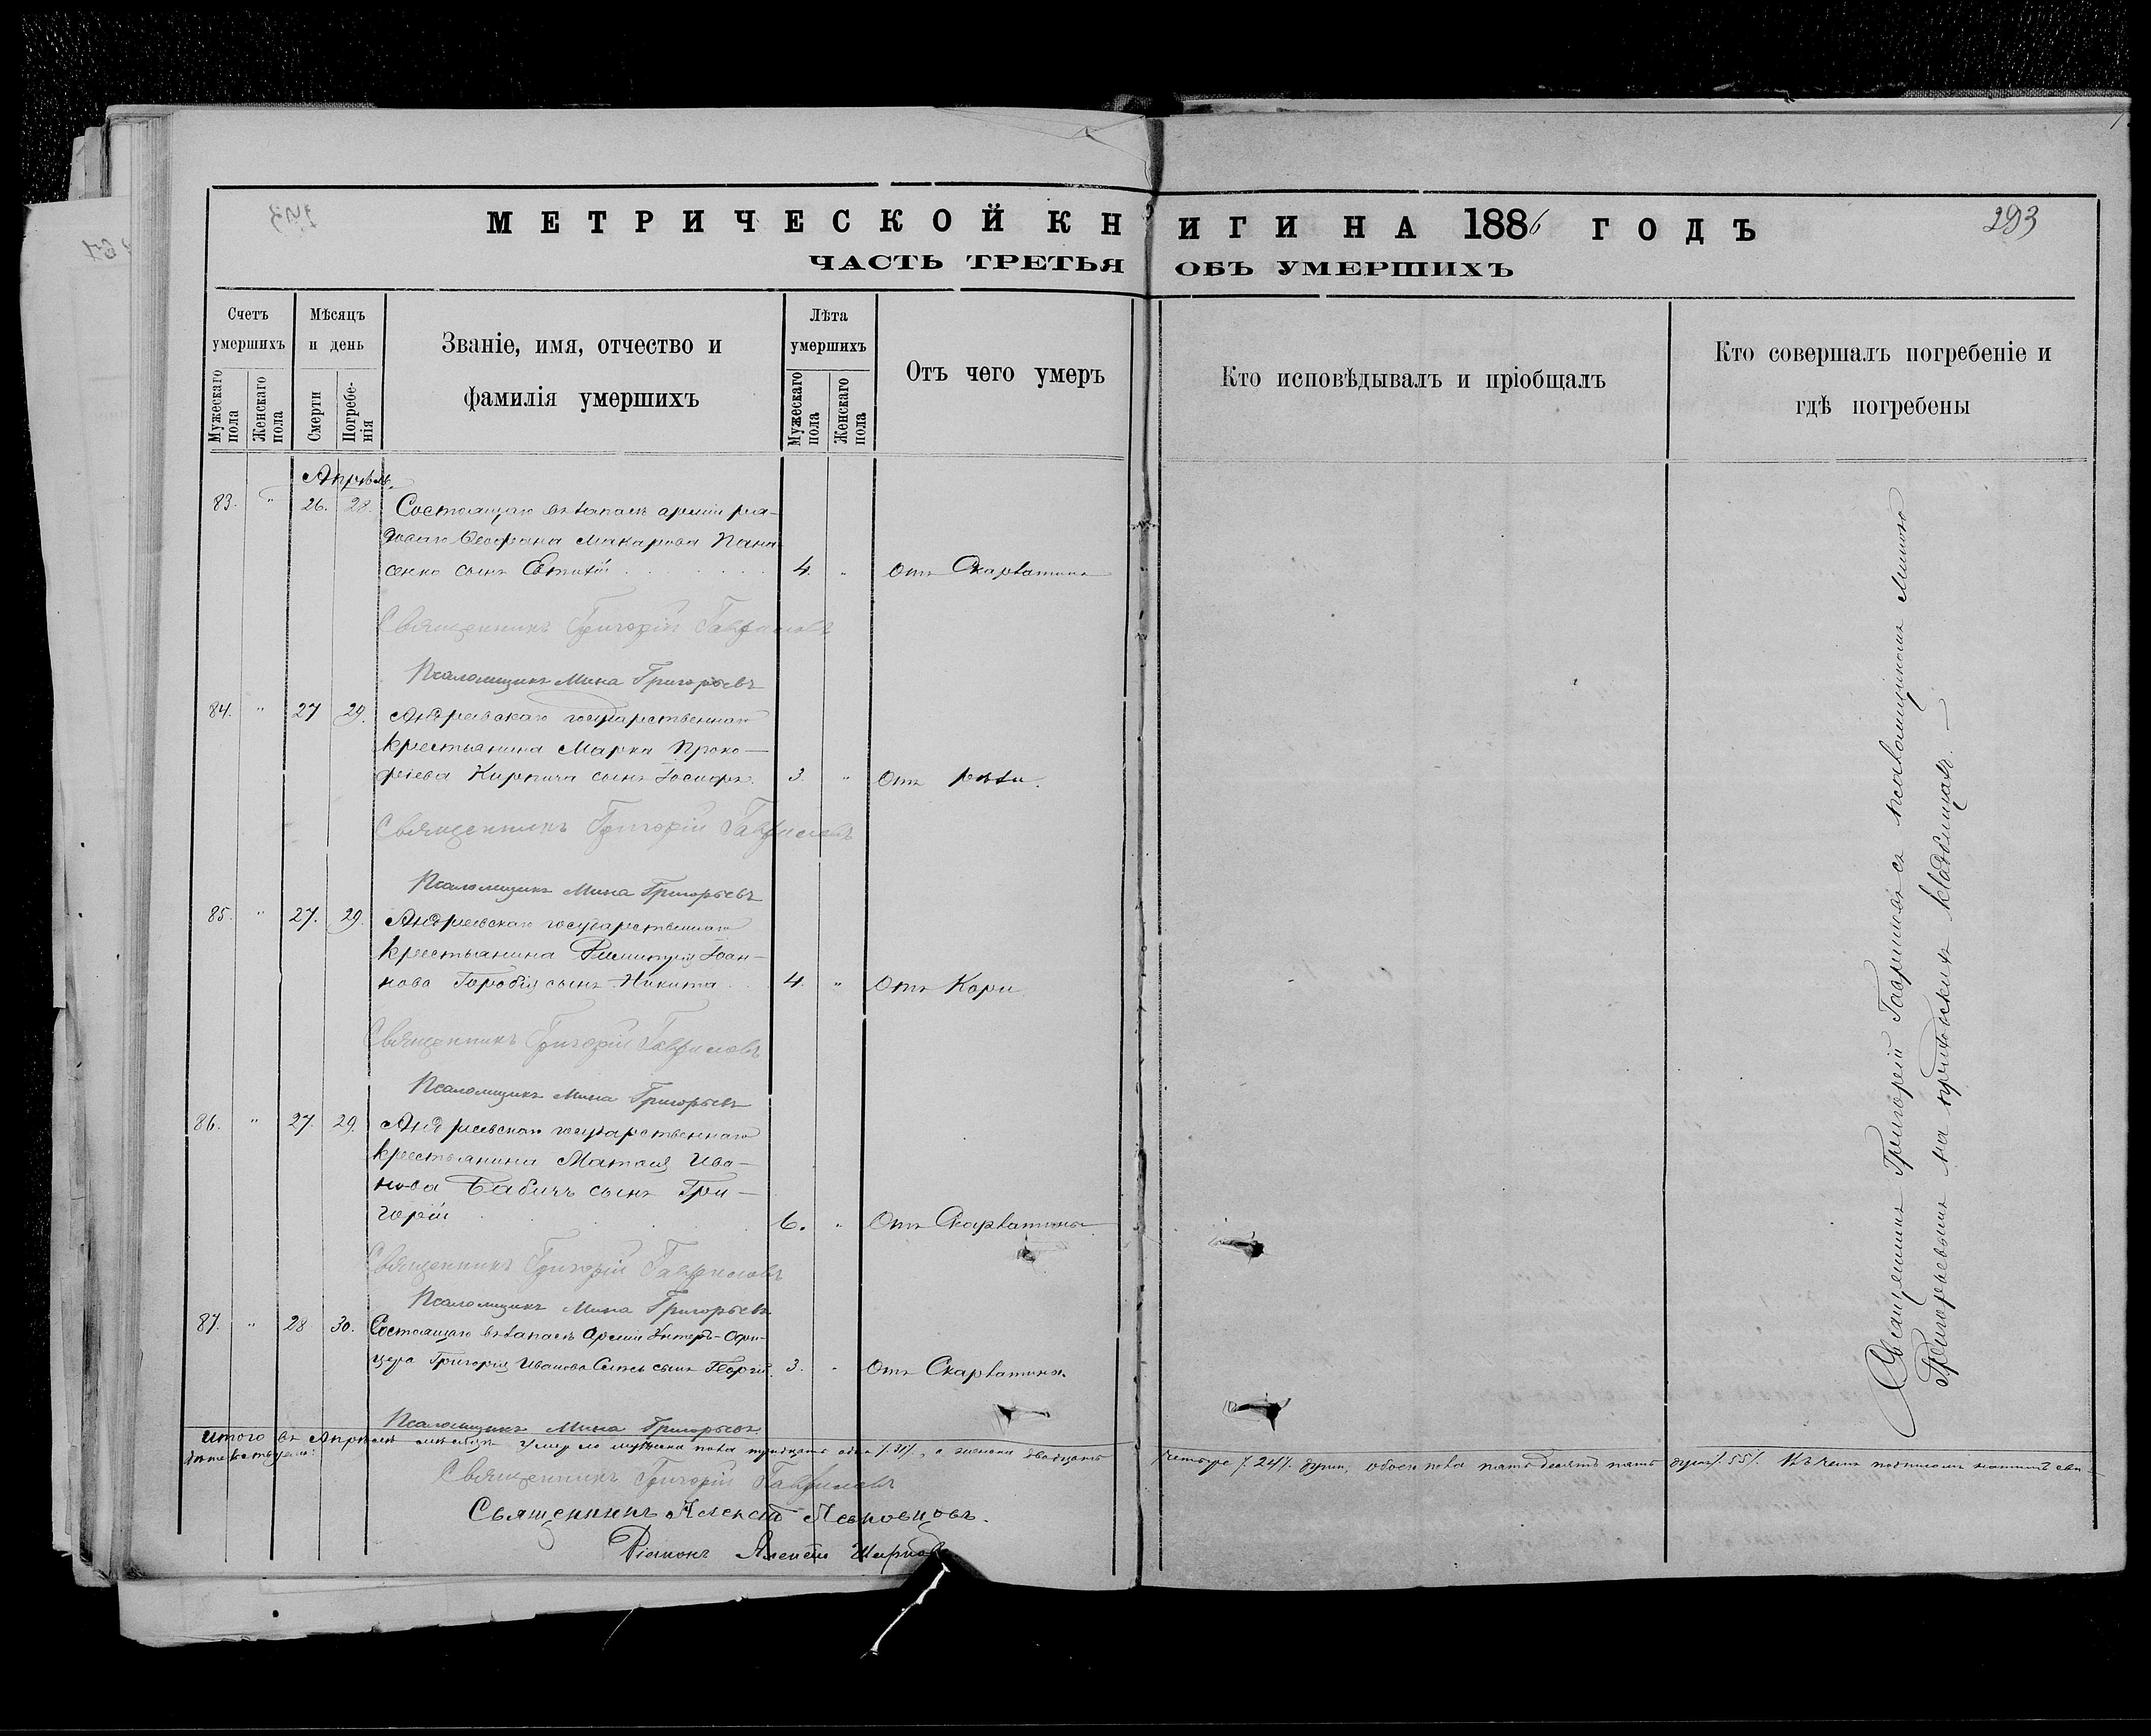 МЕТРИЧЕСКОЙ КНИГИ НА 1886 ГОДЪ
293
ЧАСТЬ ТРЕТЬЯ ОБЪ УМЕРШИХЪ
Счетъ умершихъ
Мѣсяцъ и день
Званіе, имя, отчество и фамилія умершихъ
Лѣта умершихъ
Отъ чего умеръ
Кто исповѣдывалъ и пріобщалъ
Кто совершалъ погребеніе и гдѣ погребены
Мужескаго пола
Женскаго пола
Смерти
Погребенія
Мужескаго пола
Женскаго пола
Апрѣль.
83. " 26. 28. Состоящаго въ запасѣ арміи ря-
доваго Ѳеофана Макарова Пана-
сенко сынъ Евтихій 4. " Отъ Скарлатины
Священникъ Григорій Гавриловъ
Псаломщикъ Мина Григорьевъ
84. " 27 29. Андреевскаго государственнаго
крестьянина Марка Проко-
фіева Кирпича сынъ Іосифъ. 3. " Отъ
Священникъ Григорій Гавриловъ
Псаломщикъ Мина Григорьевъ
85. " 27. 29. Андреевскаго государственнаго
крестьянина Димитрія Іоан-
нова Горобія сынъ Никита 4. " Отъ Кори
Священникъ Григорій Гавриловъ
Псаломщикъ Мина Григорьевъ
86. " 27. 29. Андреевскаго государственнаго
крестьянина Матѳея Ива-
нова Бабичъ сынъ Гри-
горій 6. " Отъ Скарлатины
Священникъ Григорій Гавриловъ
Псаломщикъ Мина Григорьевъ
87. " 28 30. Состоящаго въ запасѣ Арміи Унтеръ-Офи-
цера Григорія Иванова сынъ Георгій. 3. " Отъ Скарлатины.
Псаломщикъ Мина Григорьевъ
Итого въ Апрѣлѣ мѣсяцѣ умерло мужеска пола тридцать одна /31/, а женска двадцать четыре /24/ души, обоего пола пятьдесятъ пять душъ /55/. Въ чемъ подписомъ нашимъ сви-
дѣтельствуемъ:
Священникъ Григорій Гавриловъ
Священникъ Алексѣй
Діаконъ Алексѣй
Священникъ Григорій Гавриловъ съ псаломщикомъ Миною
Григорьевымъ на приходскихъ кладбищахъ.